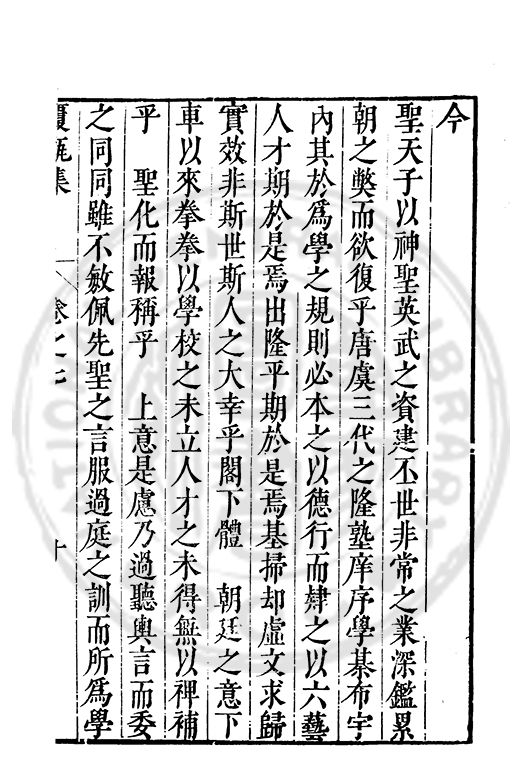 今
聖天子以神聖英武之資建丕世非常之業深鑑累
朝之獘而欲復乎唐虞三代之隆塾庠序學棊布宇
內其於爲學之規則必本之以德行而肄之以六藝
人才期於是焉出隆平期於是焉基掃却虛文求歸
實效非斯世斯人之大幸乎閣下體　朝廷之意下
車以來拳拳以學校之未立人才之未得無以裨補
乎　聖化而報稱乎　上意是慮乃過聽輿言而委
之同同雖不敏佩先聖之言服過庭之訓而所爲學
覆瓿集　卷之七　十